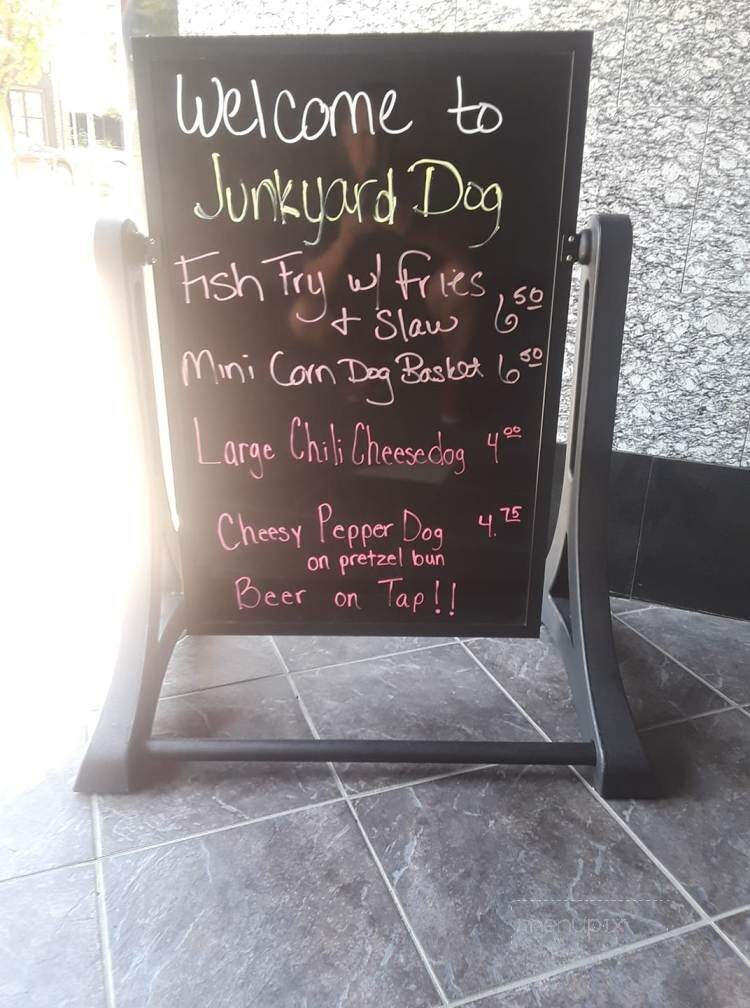 Welcome to
Junkyard Dog
Fish Fry w/ fries
+ Slaw 6 50
Mini Corn Dog Basket 6 50
Large Chili Cheesedog 4 00
Cheesy Pepper Dog 4.75
on pretzel bun
Beer on Tap!!
menupix